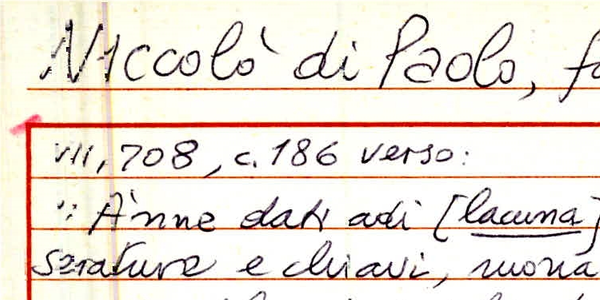 Niccolò di Paolo, fa
VII, 708, c. 186 verso:
": Ànne dati adi [lacuna]
serature e chiavi, mona